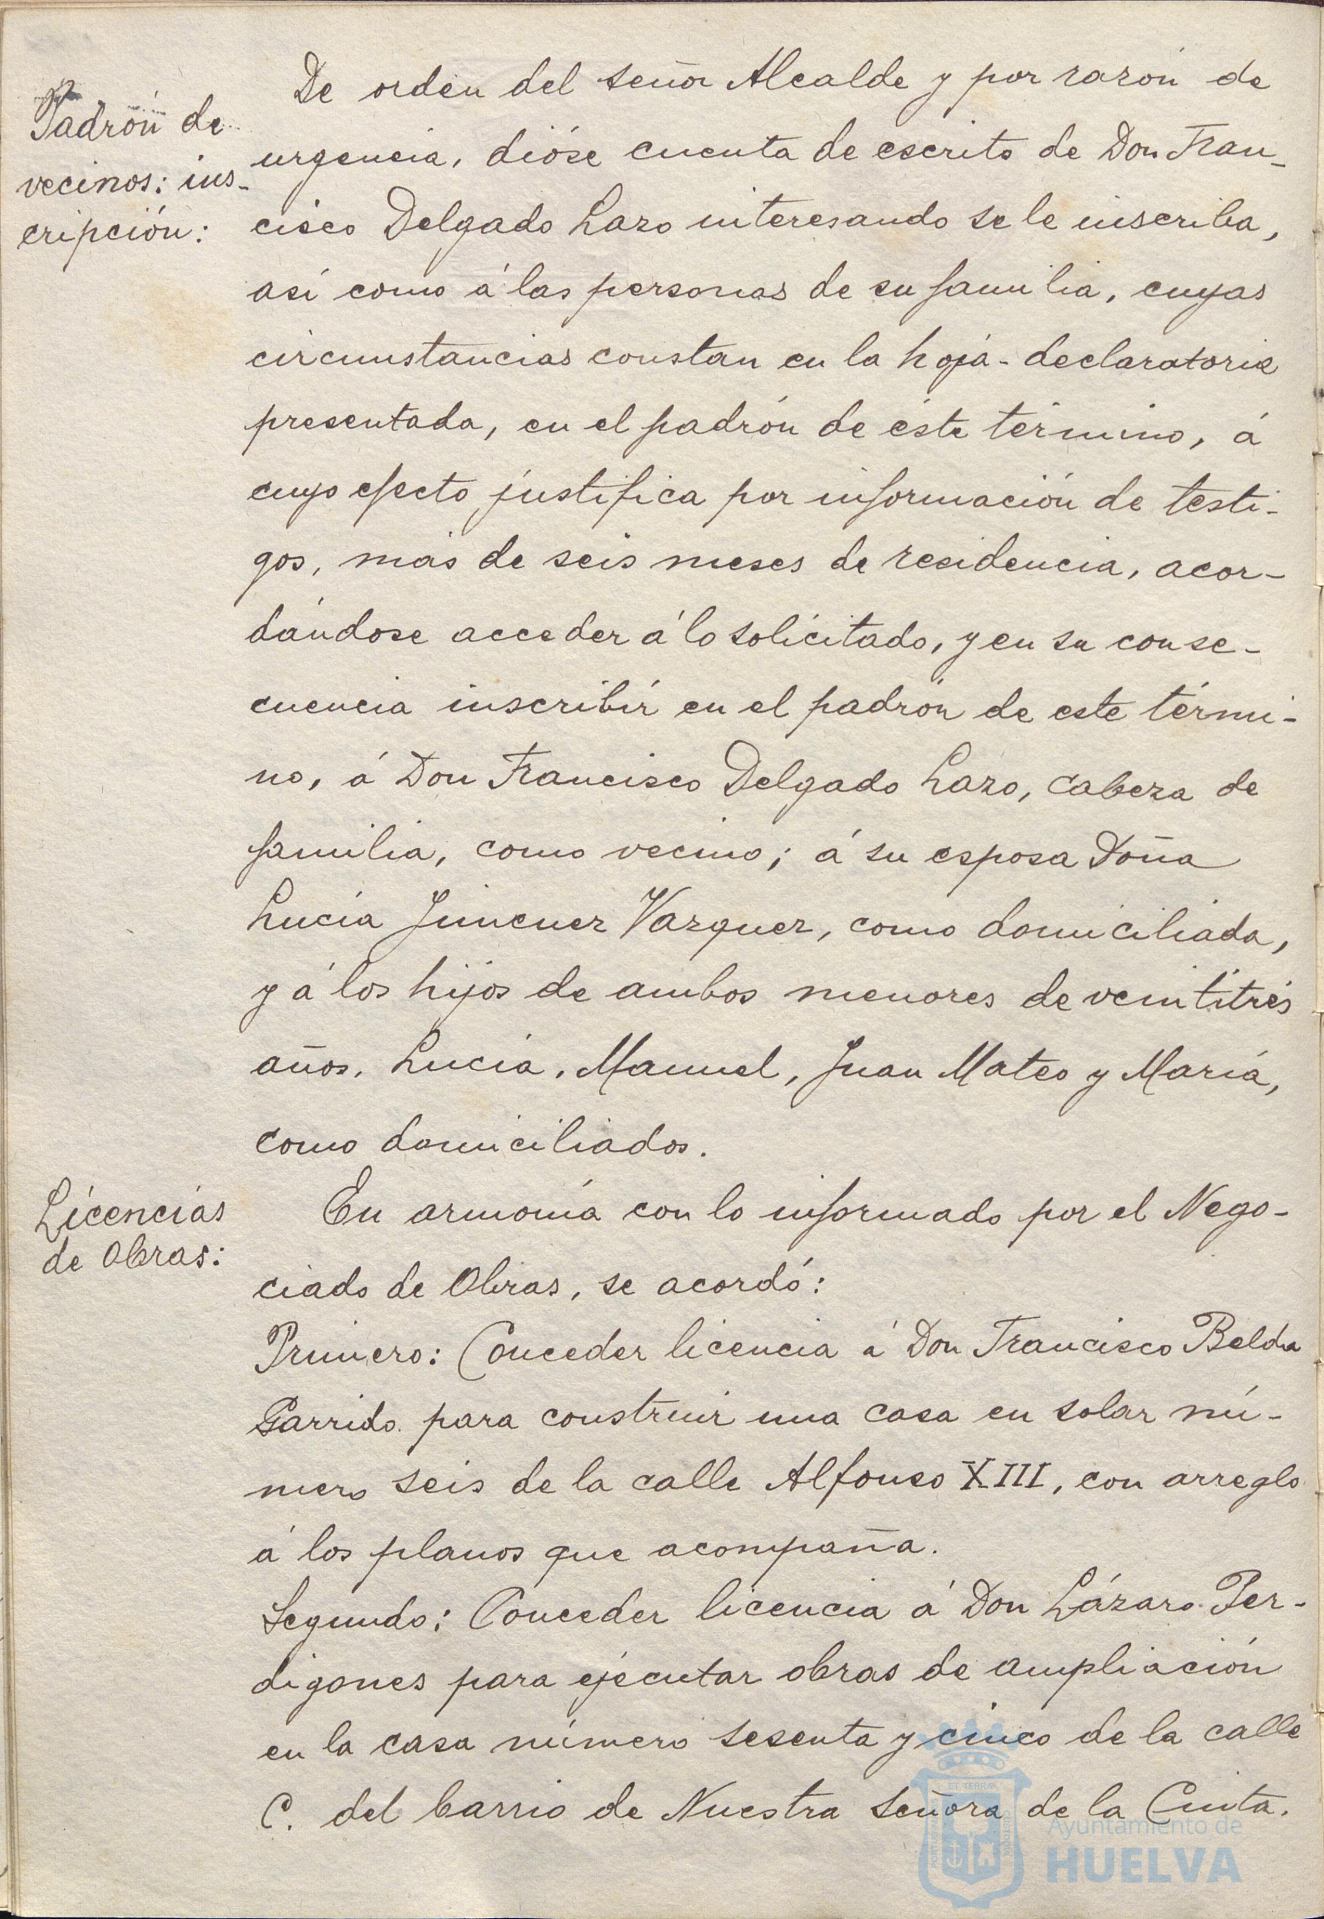 Padrón de
vecinos: ins-
cripción:
De orden del señor Alcalde y por razón de
urgencia, dióse cuenta de escrito de Don Fran-
cisco Delgado Lazo interesando se le inscriba,
así como á las personas de su familia, cuyas
circunstancias constan en la hoja-declaratoria
presentada, en el padrón de éste término, á
cuyo efecto justifica por información de testi-
gos, más de seis meses de residencia, acor-
dándose acceder á lo solicitado, y en su conse-
cuencia inscribir en el padrón de este térmi-
no, á Don Francisco Delgado Lazo, cabeza de
familia, como vecino; á su esposa Doña
Lucía Jimenez Vazquez, como domiciliada,
y á los hijos de ambos menores de veintitrés
años, Lucía, Manuel, Juan Mateo y María,
como domiciliados.
Licencias
de Obras:
En armonía con lo informado por el Nego-
ciado de Obras, se acordó:
Primero: Conceder licencia á Don Francisco Belda
Garrido para construir una casa en solar nú-
mero seis de la calle Alfonso XIII, con arreglo
á los planos que acompaña.
Segundo: Conceder licencia á Don Lázaro Per-
digones para ejecutar obras de ampliación
en la casa número sesenta y cinco de la calle
C. del barrio de Nuestra Señora de la Cinta.
Ayuntamiento de
HUELVA